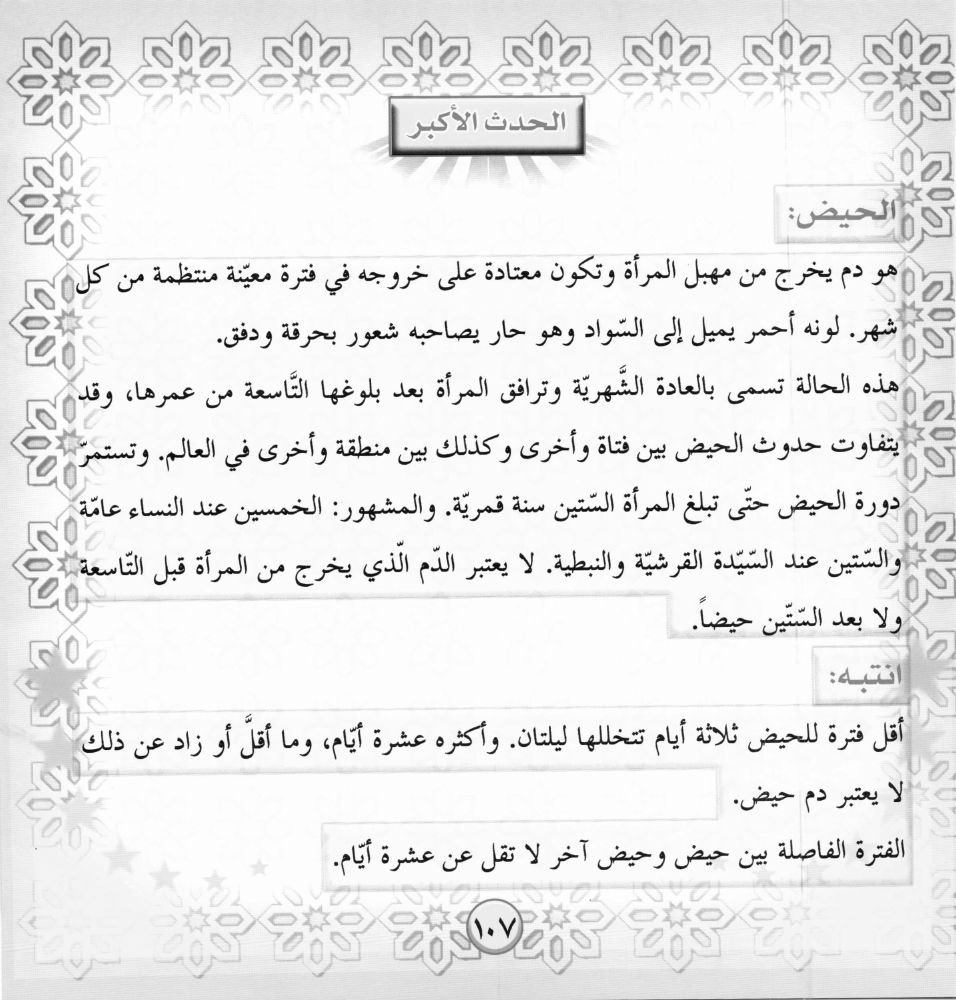 الحدث الأكبر
الحيض:
هو دم يخرج من مهبل المرأة وتكون معتادة على خروجه في فترة معيّنة منتظمة من كل
شهر. لونه أحمر يميل إلى السّواد وهو حار يصاحبه شعور بحرقة ودفق.
هذه الحالة تسمى بالعادة الشَّهريّة وترافق المرأة بعد بلوغها التَّاسعة من عمرها، وقد
يتفاوت حدوث الحيض بين فتاة وأخرى وكذلك بين منطقة وأخرى في العالم. وتستمرّ
دورة الحيض حتّى تبلغ المرأة السّتين سنة قمريّة. والمشهور: الخمسين عند النساء عامّة
والسّتين عند السّيّدة القرشيّة والنبطية. لا يعتبر الدّم الّذي يخرج من المرأة قبل التّاسعة
ولا بعد السّتّين حيضاً.
انتبه:
أقل فترة للحيض ثلاثة أيام تتخللها ليلتان. وأكثره عشرة أيّام، وما أقلَّ أو زاد عن ذلك
لا يعتبر دم حيض.
الفترة الفاصلة بين حيض وحيض آخر لا تقل عن عشرة أيّام.
١٠٧